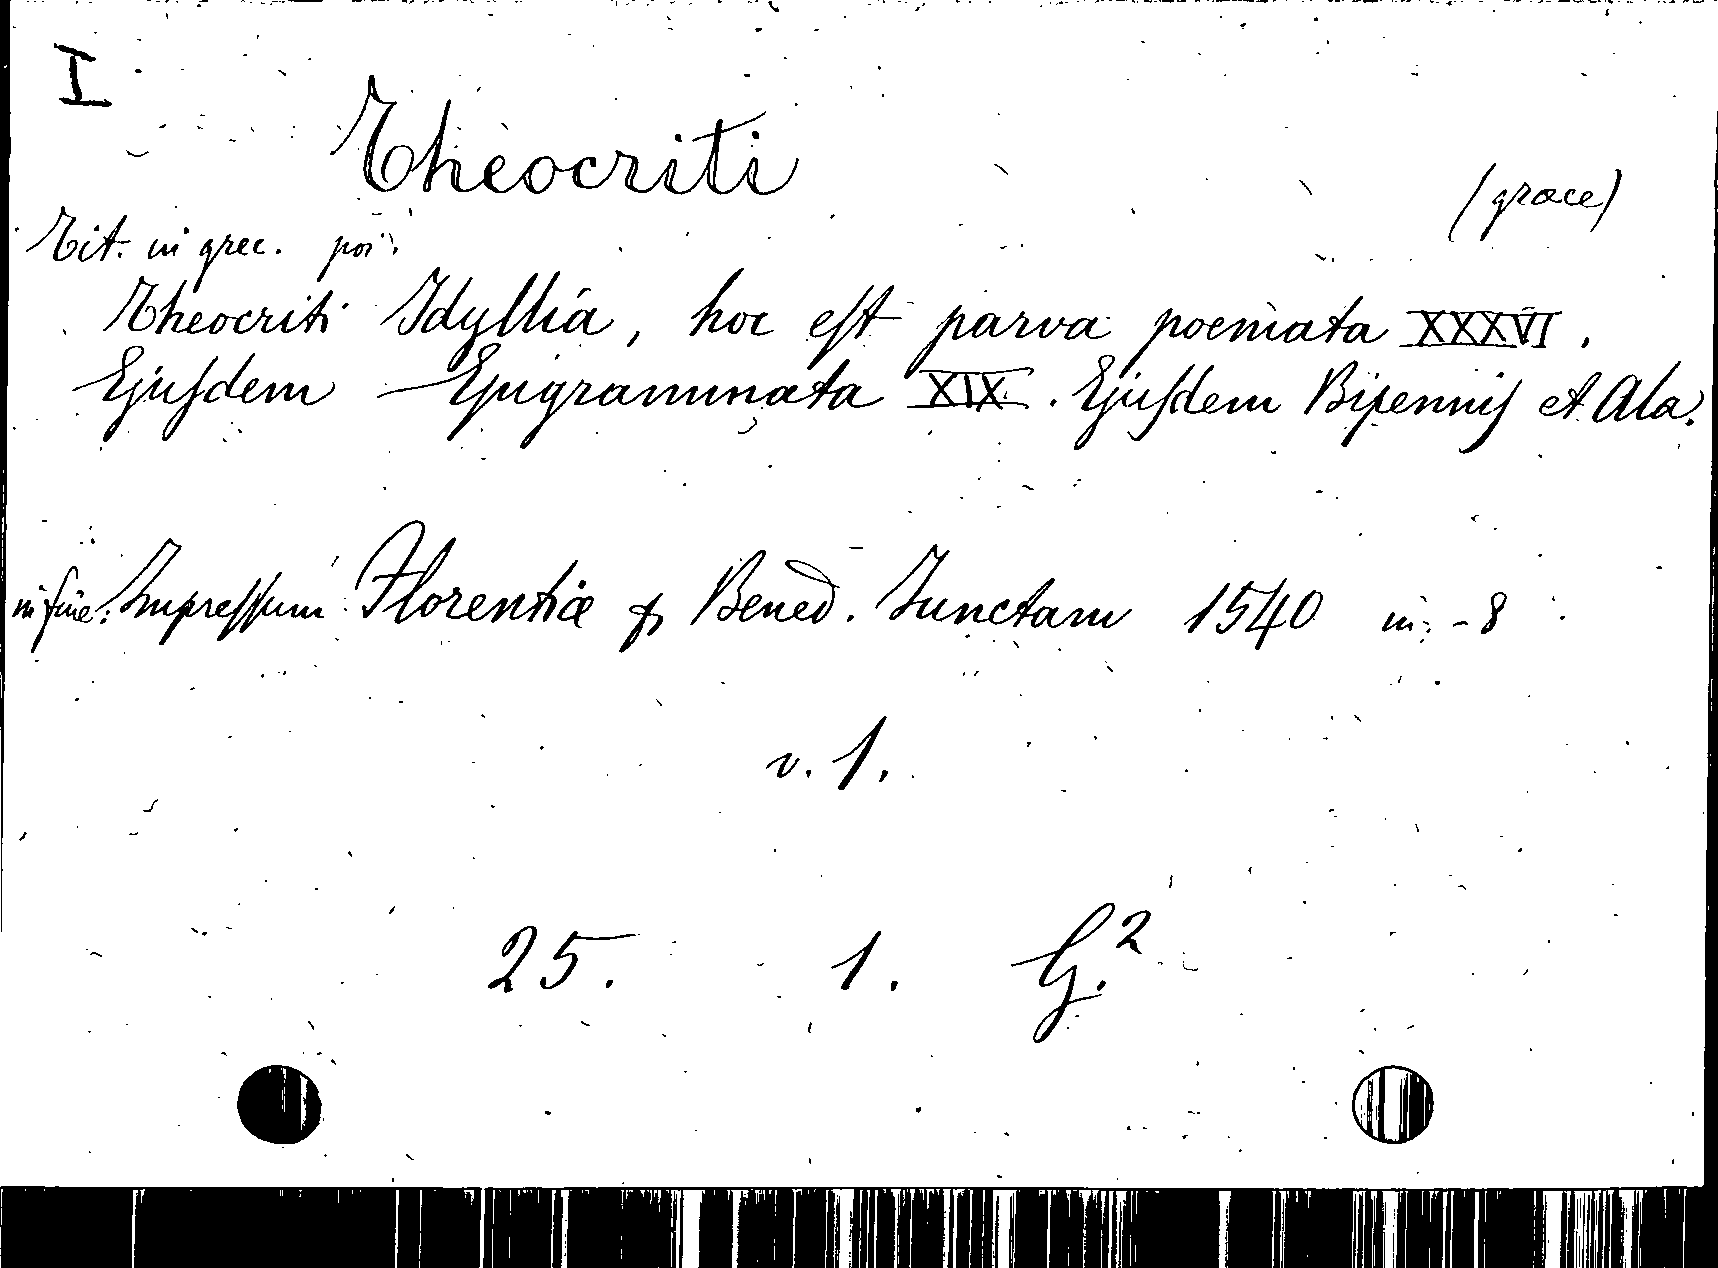 I
Theocriti
(græce)
Tit. in grec. poi:
Theocriti Idyllia, hoc eſt parva poemata XXXVI.
Ejuſdem Epigrammata XIX. Ejuſdem Bipennis et Ala.
in fine: Impreſſum Florentiæ p Bened. Junctam 1540 in-8
v. 1.
25. 1. G.²